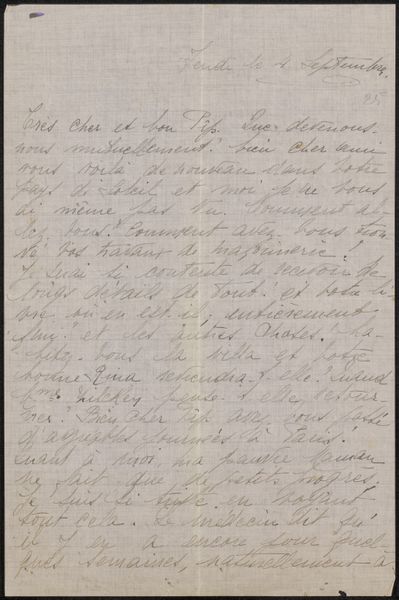 le 4 Septembre
25
Très cher et bon Pip. Que devenons-
nous mutuellement? bien cher ami
vous voilà de nouveau dans votre
pays de soleil et moi je ne vous
ai même pas vu. Comment al-
lez vous? Comment avez-vous trou-
vé vos travaux de maçonnerie?
Je serai si contente de recevoir de
longs détails de tout! et votre li-
vre, où en est-il, entièrement
fini? et les autres choses. Ha-
bitez-vous la villa et votre
bonne Rina reviendra-t-elle? Quand
Mme pense-t-elle retour-
ner? Bien cher Pip avez-vous passé
d'agréables journées à Paris?
Quant à moi, ma pauvre Maman
ne fait que de petits progrès.
Je suis si triste en voyant
tout cela. Le médecin dit qu'
il y en a encore pour quel-
ques semaines, naturellement à